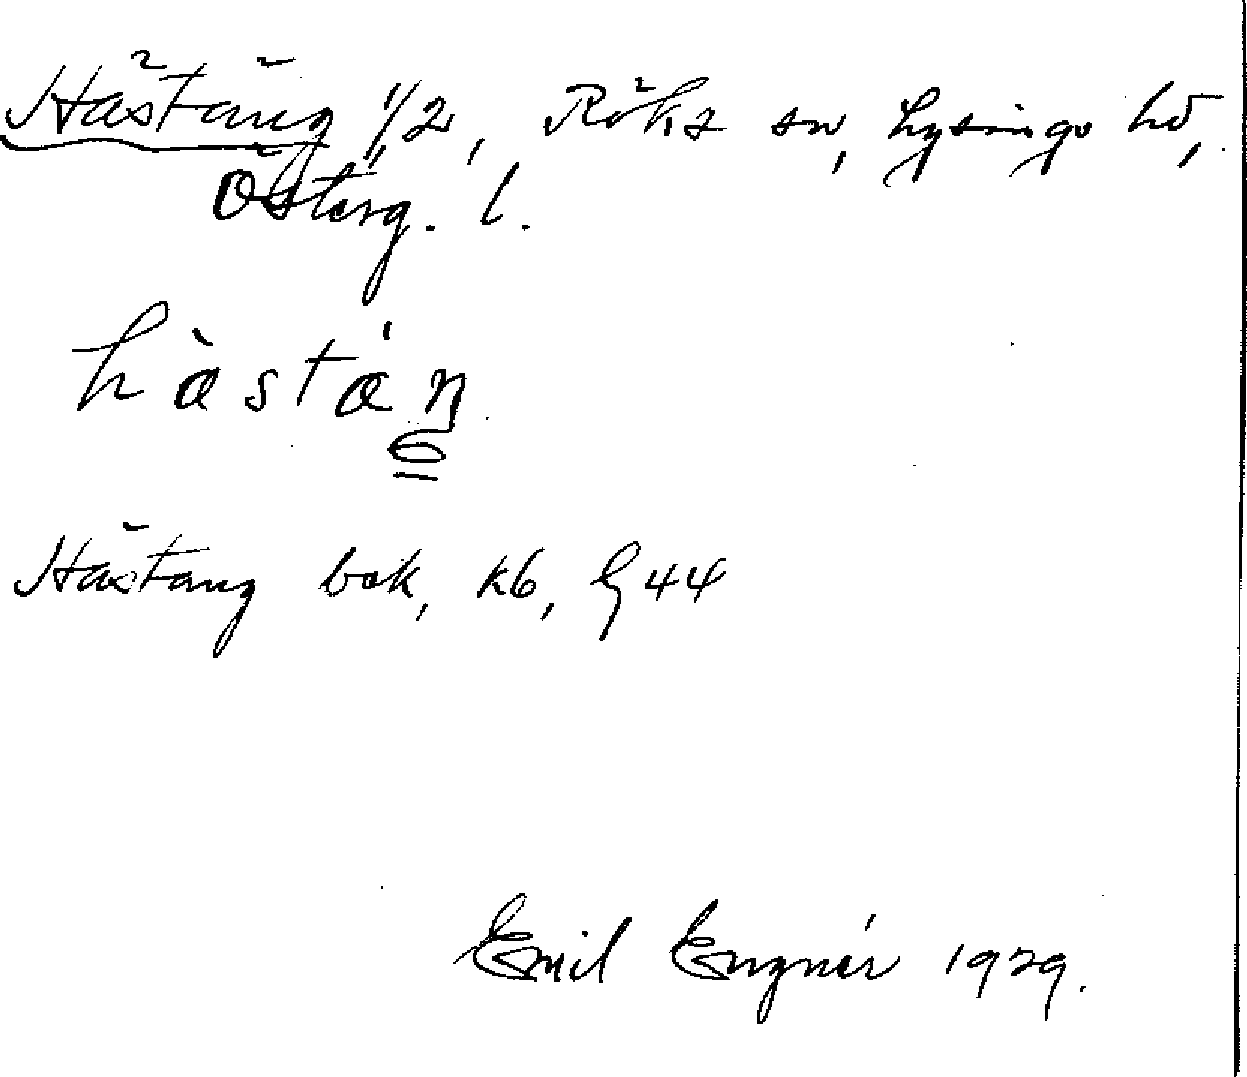 Hästäng 1/2, Röks sn, Lysings hd,
Österg. l.
hàstáŋ
Hästang bok, kb, G 44
Emil Engnér 1929.